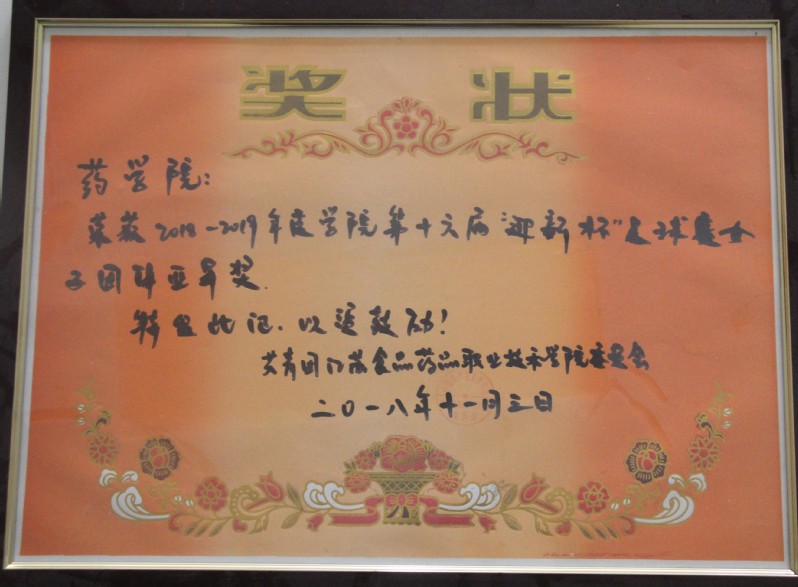 奖 状
药学院：
荣获2018-2019年度学院第十六届"迎新杯"足球赛女
子团体亚军奖.
特发此记.以资鼓励！
共青团江苏食品药品职业技术学院委员会
二〇一八年十一月三日